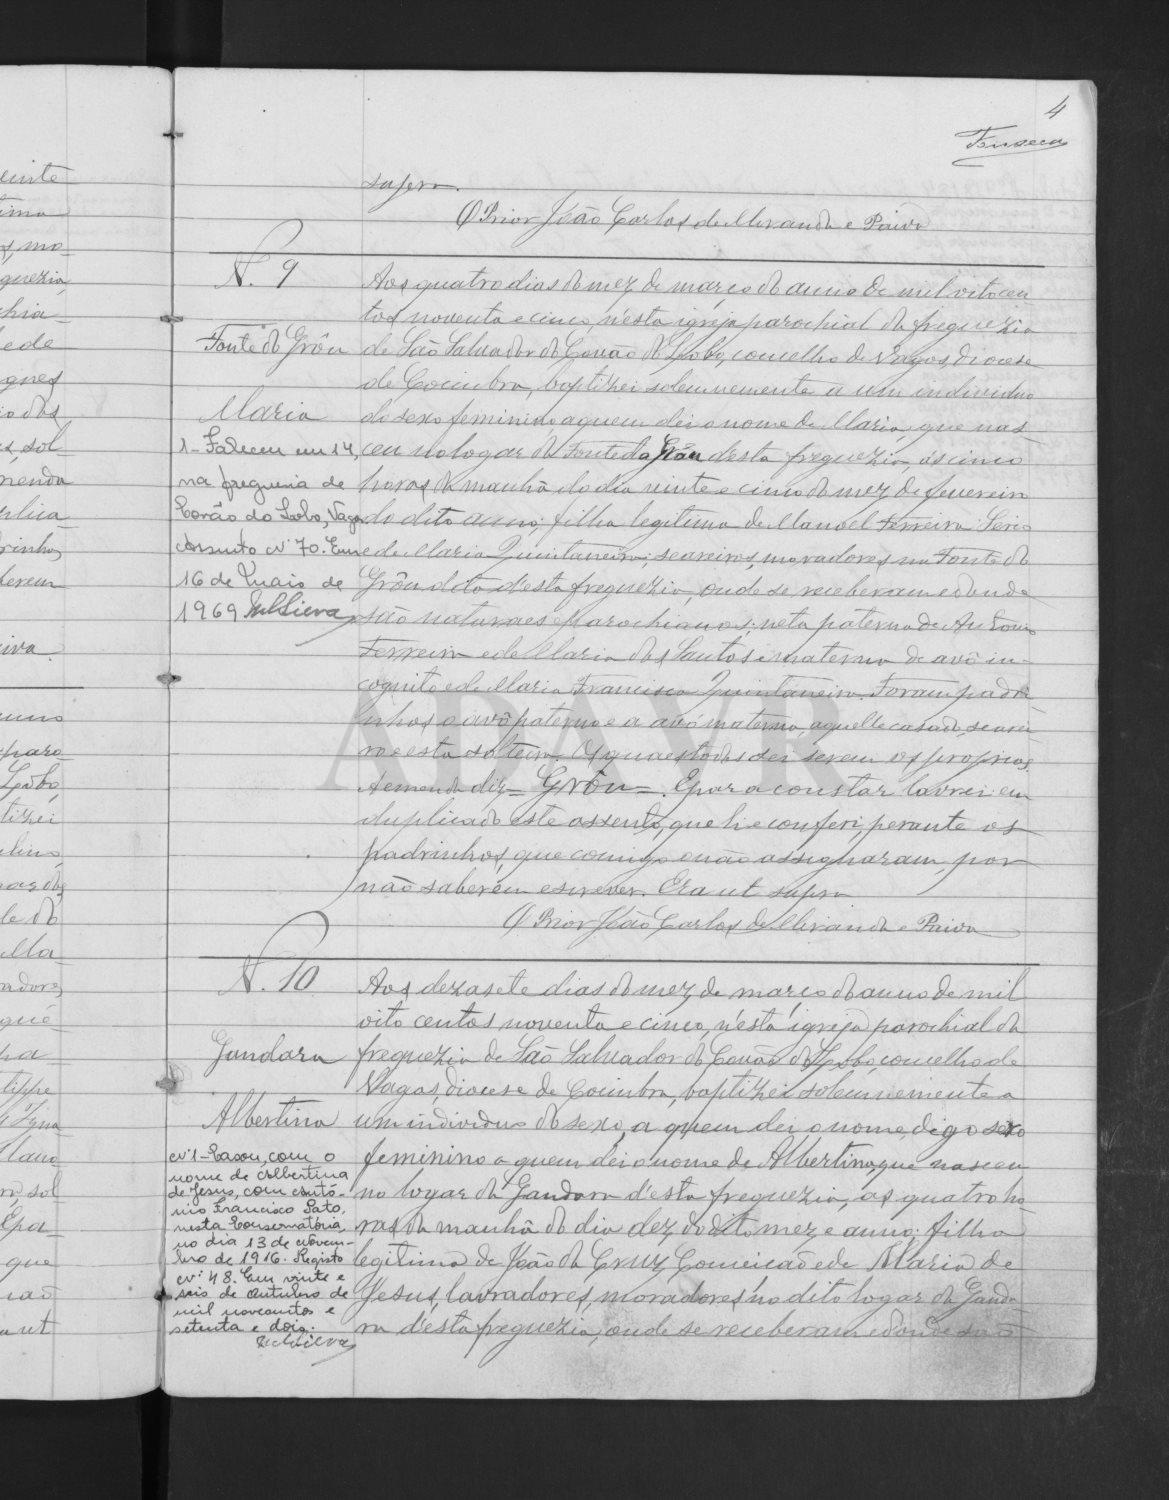 4
Fonseca
supra.
O Prior João Carlos de Miranda e Paiva
N. 9
Fonte do Grôu
Maria
1 - Faleceu em 14,
na freguesia de
Covão do Lobo, Vagos
Assento nº 70. Em
16 de Maio de
1969
Aos quatro dias do mez de março do anno de mil oitocen
tos noventa e cinco, n'esta igreja parochial da freguezia
de São Salvador do Covão do Lobo, concelho de Vagos, diocese
de Coimbra, baptizei solemnemente a um individuo
do sexo feminino, a quem dei o nome de Maria, que nas-
ceu no logar da Fonte do Grôu desta freguezia, ás cinco
horas da manhã do dia vinte e cinco do mez de fevereiro
do dito anno; filha legitima de Manoel Ferreira Serio
e de Maria Quintaneiro; seareiros, moradores na Fonte do
Grôu dito d'esta freguezia, onde se receberam e donde
são naturaes e parochianos; neta paterna de Antonio
Ferreira e de Maria dos Santos e materna de avô in-
cognito e de Maria Francisca Quintaneiro. Foram padri
nhos o avô paterno e a avó materna, aquelle casado, searei
ro e esta solteira. Os quaes todos sei serem os proprios.
A emenda diz = Grôu =. E para constar lavrei em
duplicado este assento, que li e conferi, perante os
padrinhos, que comigo o não assignaram, por
não saberem escrever. Era ut supra
O Prior João Carlos de Miranda e Paiva
N. 10
Gandara
Albertina
nº 1 - Casou, com o
nome de Albertina
de Jesus, com Antó-
nio Francisco Pato,
nesta Conservatória,
no dia 13 de Novem-
bro de 1916. Registo
nº 48. Em vinte e
seis de Outubro de
mil novecentos e
setenta e dois.
Aos dezasete dias do mez de março do anno de mil
oito centos noventa e cinco, n'esta igreja parochial da
freguezia de São Salvador do Covão do Lobo, concelho de
Vagos, diocese de Coimbra, baptizei solemnemente a
um individuo do sexo, a quem dei o nome, digo sexo
feminino a quem dei o nome de Albertina, que nasceu
no logar da Gandara d'esta freguezia, as quatro ho
ras da manhã do dia dez do dito mez e anno; filha
legitima de João da Cruz Conceicão e de Maria de
Jesus, lavradores, moradores no dito logar da Ganda-
ra d'esta freguezia, onde se receberam e donde são